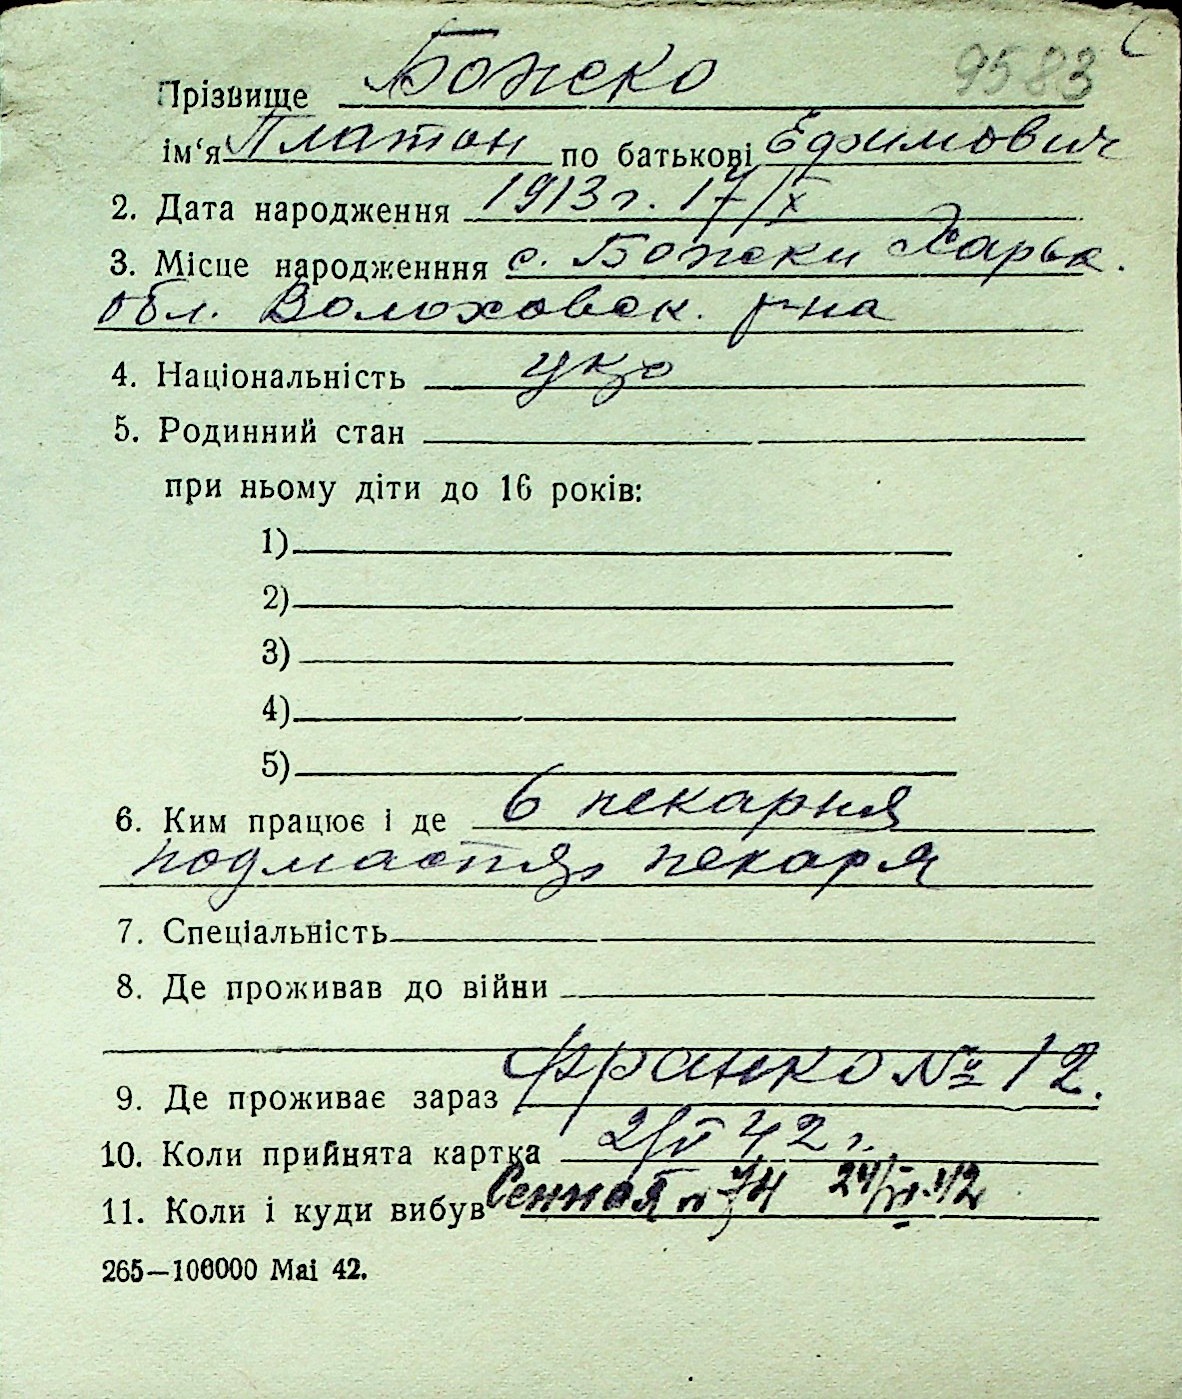 9583
Прізвище Божко
ім‘я Платон по батькові Ефимович
2. Дата народження 1913 г. 17/X
3. Місце народженння с. Божки Харьк.
обл. Волоховск. р-на
4. Національність укр
5. Родинний стан
при ньому діти до 16 років:
1)
2)
3)
4)
5)
6. Ким працює і де 6 пекарня
пекаря
7. Спеціальність
8. Де проживав до війни
9. Де проживає зараз Франко № 12.
10. Коли прийнята картка 42 г.
11. Коли і куди вибув Сенная № 74
265—100000 Mai 42.